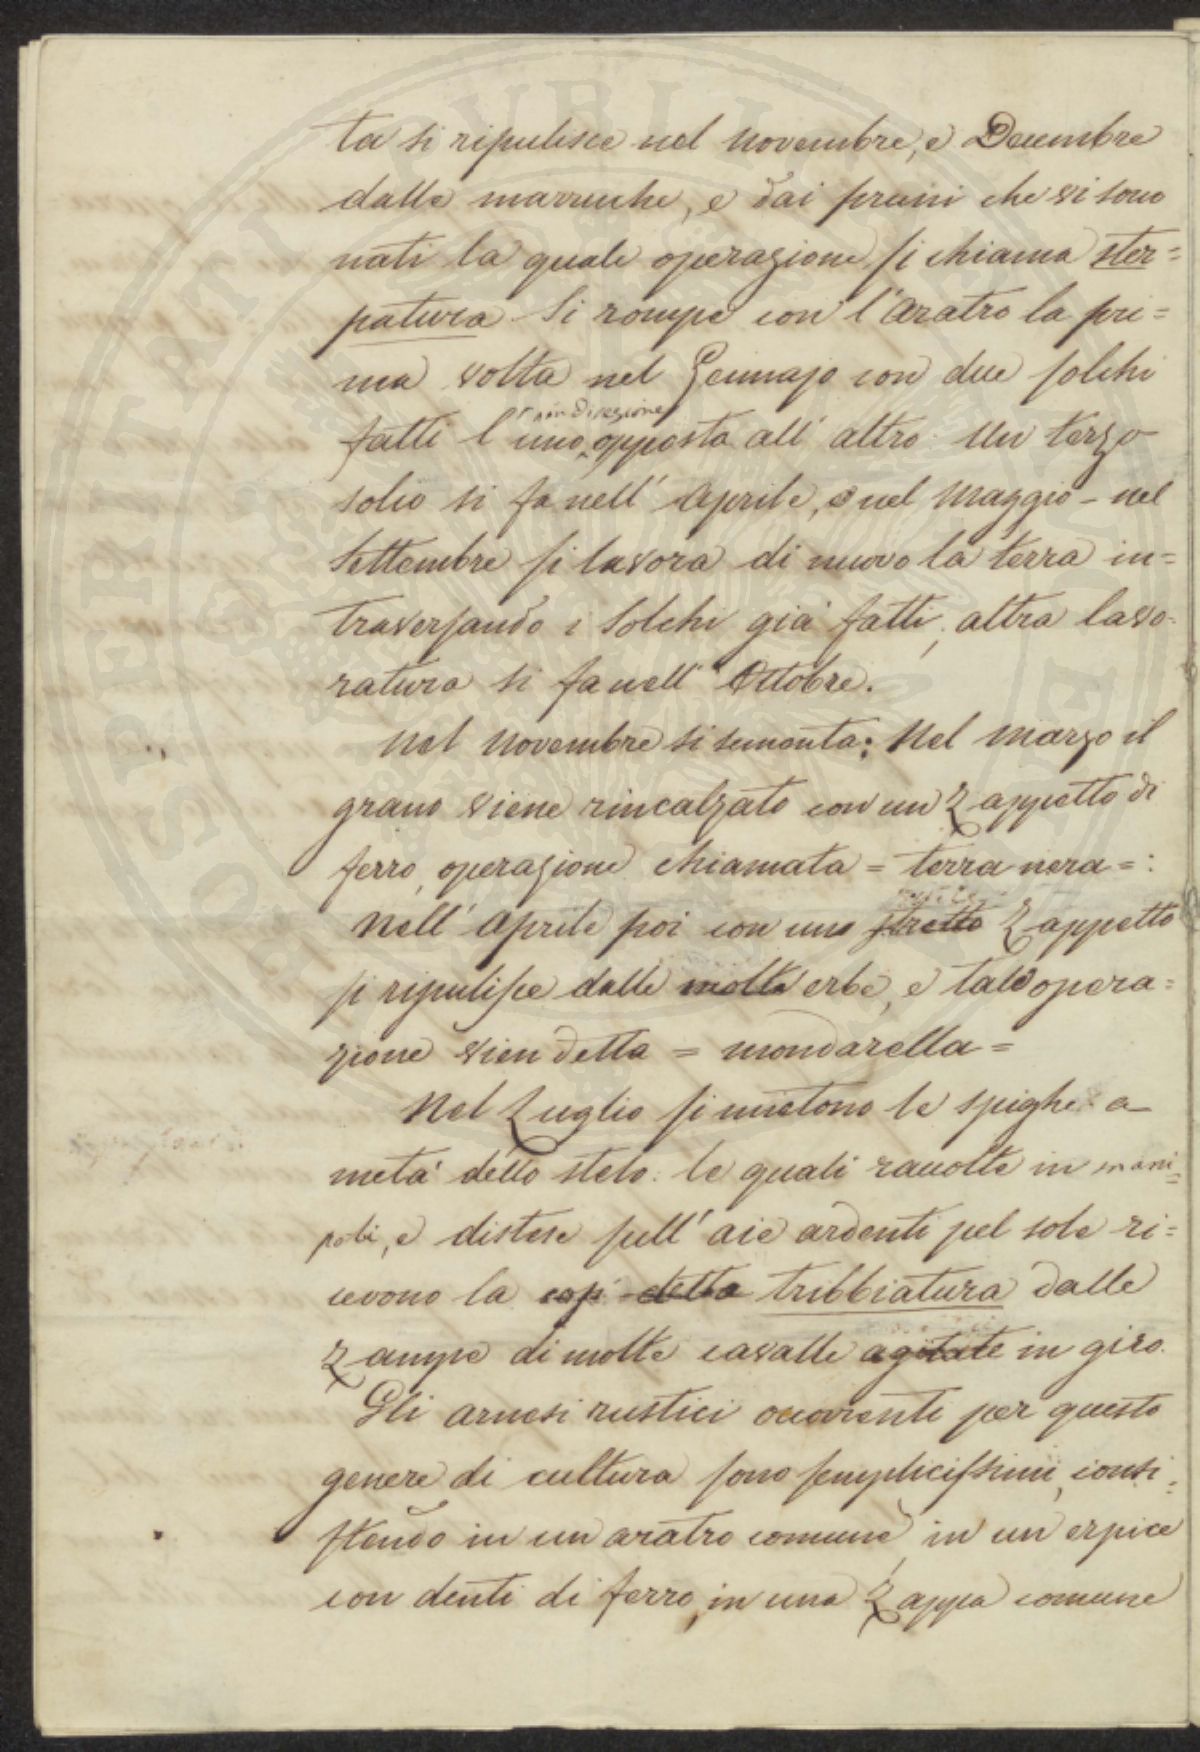 ta si ripulisce nel novembre, e Decembre
dalle marruche, e dai pruni che vi sono
nati la quale operazione si chiama ster=
patura. Si rompe con l'aratro la pri=
ma volta nel Gennajo con due solchi
in direzione
fatti l'uno opposta all'altro. Un terzo
solco si fa nell'Aprile, e nel Maggio - nel
Settembre si lavora di nuovo la terra in=
traversando i Solchi già fatti, altra lavo=
ratura si fa nell'Ottobre.
Nel Novembre si sementa: Nel marzo il
grano viene rincalzato con un Zappetto di
ferro, operazione chiamata = terra nera =:
Nell'Aprile poi con uno stretto Zappetto
si ripulisce dalle molte erbe, e tale opera=
zione vien detta = mondarella =
Nel Luglio si mietono le spighe a
metà dello stelo: le quali raccolte in mani=
poli, e distese sull'aie ardenti pel sole ri=
cevono la così detta tribbiatura dalle
Zampe di molte cavalle agitate in giro.
Gli arnesi rustici occorrenti per questo
genere di cultura sono semplicissimi, consi=
stendo in un aratro comune, in un erpice
con denti di ferro, in una Zappa comune